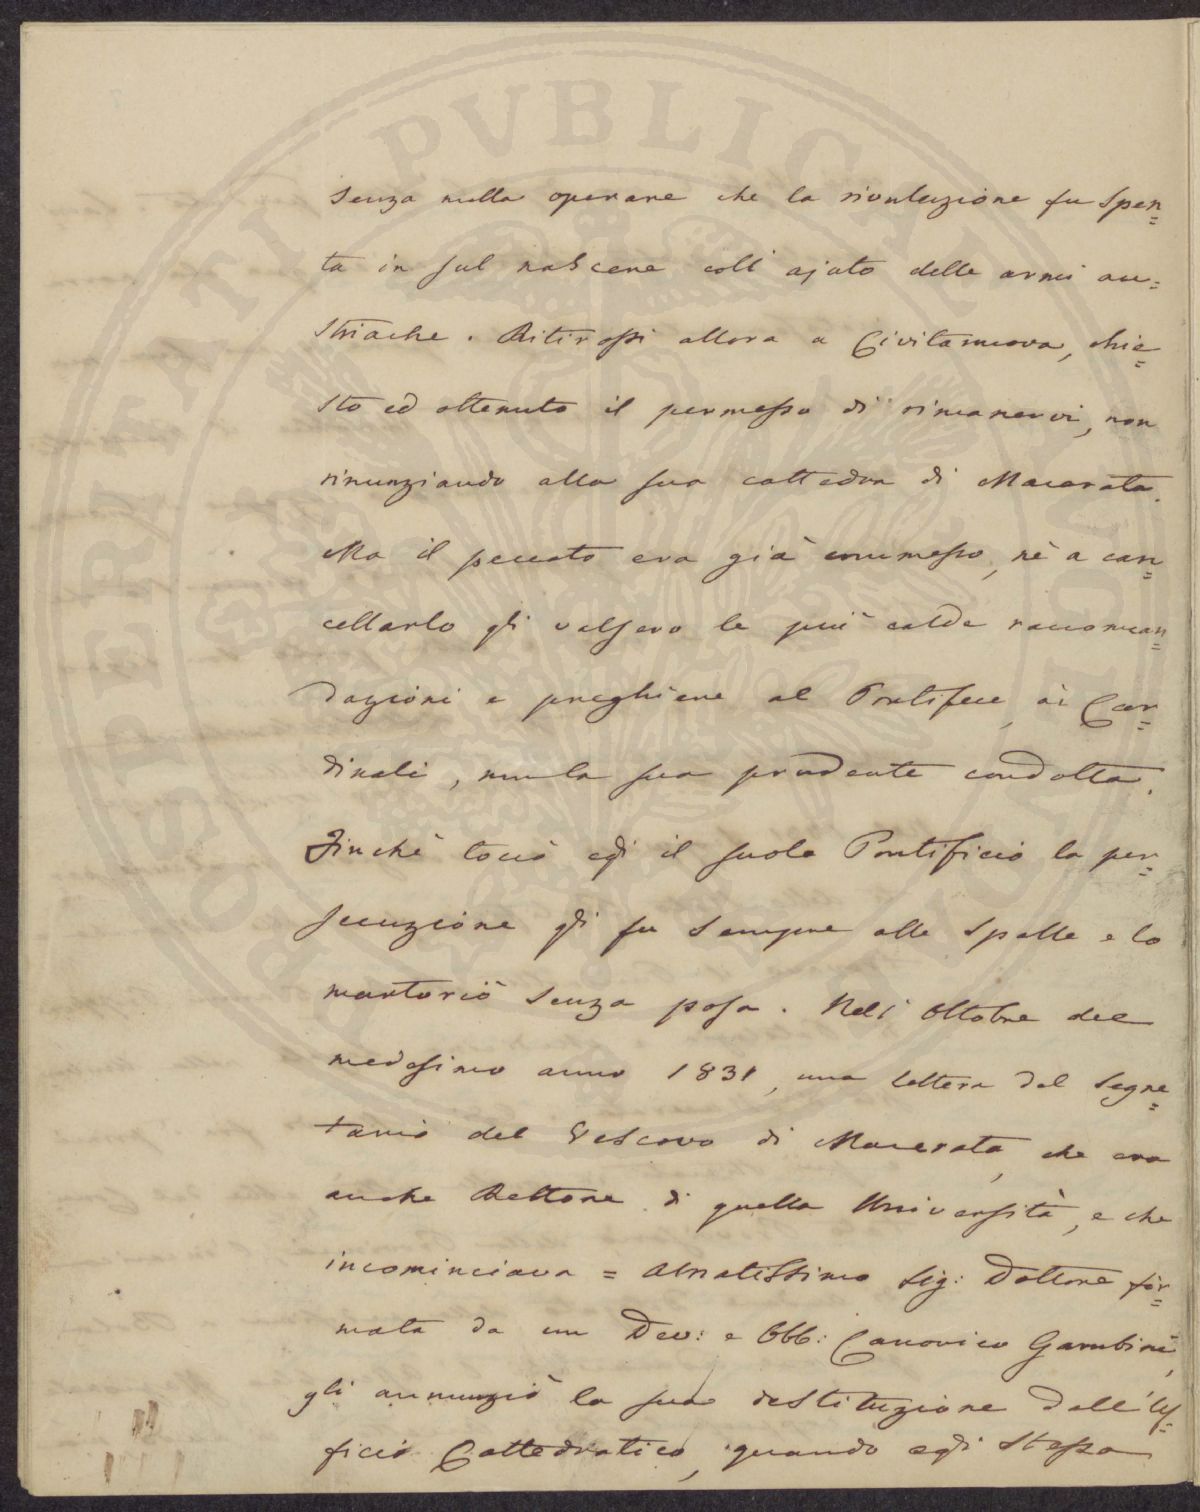 senza nulla operare che la rivoluzione fu spen=
ta in sul nascere coll' ajuto delle armi au=
striache. Ritirossi allora a Civitanuova, chie=
sto ed ottenuto il permesso di rimanervi, non
rinunziando alla sua cattedra di Macerata.
Ma il peccato era già commesso, nè a can=
cellarlo gli valsero le più calde raccoman=
dazioni e preghiere al Pontifece, ai Car=
dinali, nulla sua prudente condotta.
Finchè toccò egli il suolo Pontificio la per=
secuzione gli fu sempre alle spalle e lo
martoriò senza posa. Nell' Ottobre del
medesimo anno 1831, una lettera del Segre=
tario del Vescovo di Macerata, che era
anche Rettore di quella Università, e che
incominciava = Ornatissimo Sig: Dottore fir=
mata da un Dev: e Obb: Canonico Gambini,
gli annunziò la sua destituzione dall' Uf=
ficio Cattedratico, quando egli stesso
PROSPERITATI PVBLICAE AVGENDAE